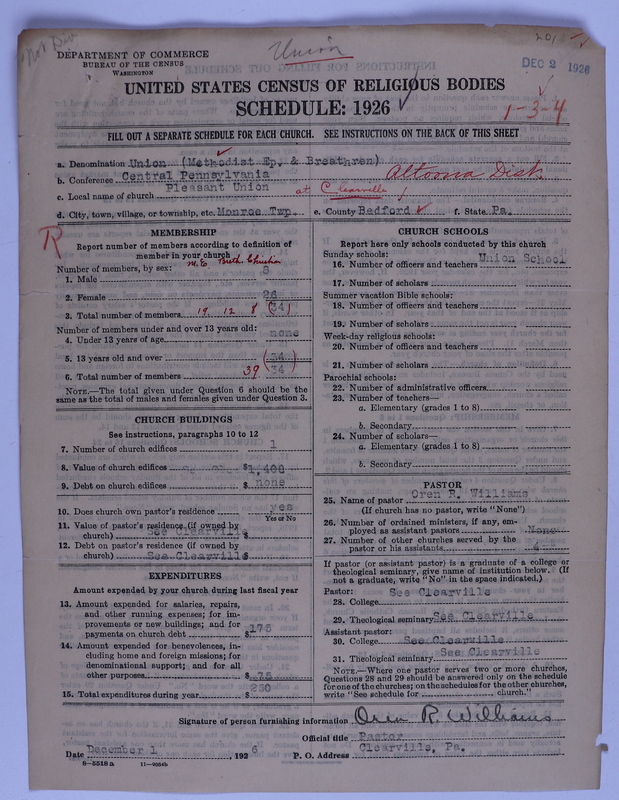 Union
DEPARTMENT OF COMMERCE
BUREAU OF THE CENSUS
WASHINGTON
DEC 2 1926
UNITED STATES CENSUS OF RELIGIOUS BODIES
SCHEDULE: 1926
1-3-4
FILL OUT A SEPARATE SCHEDULE FOR EACH CHURCH. SEE INSTRUCTIONS ON THE BACK OF THIS SHEET
a. Denomination Union (Methodist Ep. & Breathren)
b. Conference Central Pennsylvania Altoona Dist.
c. Local name of church Pleasant Union at Clearville
d. City, town, village, or township, etc. Monroe Twp. e. County Bedford f. State Pa.
R
MEMBERSHIP
Report number of members according to definition of
member in your church
M.E. Breth. Christian
Number of members, by sex:
1. Male 8
2. Female 26
3. Total number of members 19 12 8 (34)
Number of members under and over 13 years old:
4. Under 13 years of age none
5. 13 years old and over (34)
6. Total number of members 39 34
NOTE.—The total given under Question 6 should be the
same as the total of males and females given under Question 3.
CHURCH BUILDINGS
See instructions, paragraphs 10 to 12
7. Number of church edifices 1
8. Value of church edifices $1,400
9. Debt on church edifices $ none
10. Does church own pastor's residence yes
Yes or No
11. Value of pastor's residence (if owned by
church) See Clearville $
12. Debt on pastor's residence (if owned by
church) See Clearville $
EXPENDITURES
Amount expended by your church during last fiscal year
13. Amount expended for salaries, repairs,
and other running expenses; for im-
provements or new buildings; and for
payments on church debt $175
14. Amount expended for benevolences, in-
cluding home and foreign missions; for
denominational support; and for all
other purposes $ 75
15. Total expenditures during year $ 250
CHURCH SCHOOLS
Report here only schools conducted by this church
Sunday schools:
16. Number of officers and teachers Union School
17. Number of scholars
Summer vacation Bible schools:
18. Number of officers and teachers
19. Number of scholars
Week-day religious schools:
20. Number of officers and teachers
21. Number of scholars
Parochial schools:
22. Number of administrative officers
23. Number of teachers—
a. Elementary (grades 1 to 8)
b. Secondary
24. Number of scholars—
a. Elementary (grades 1 to 8)
b. Secondary
PASTOR
25. Name of pastor Oren R. Williams
(If church has no pastor, write "None")
26. Number of ordained ministers, if any, em-
ployed as assistant pastors None
27. Number of other churches served by the
pastor or his assistants 4
If pastor (or assistant pastor) is a graduate of a college or
theological seminary, give name of institution below. (If
not a graduate, write "No" in the space indicated.)
Pastor: See Clearville
28. College
29. Theological seminary See Clearville
Assistant pastor:
30. College See Clearville
See Clearville
31. Theological seminary
NOTE.—Where one pastor serves two or more churches,
Questions 28 and 29 should be answered only on the schedule
for one of the churches; on the schedules for the other churches,
write "See schedule for church."
Signature of person furnishing information Oren R. Williams
Official title Pastor
Date December 1, 1926 P. O. Address Clearville, Pa.
8-5518a 11-9064b